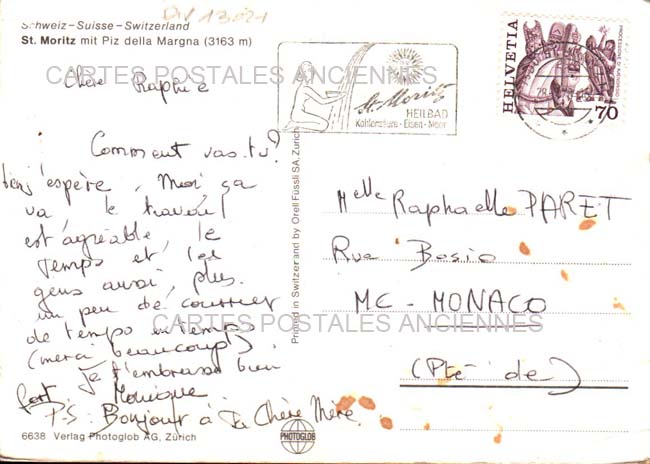 DIV 13021
Schweiz - Suisse - Switzerland
St. Moritz mit Piz della Margna (3163 m)
CARTES POSTALES ANCIENNES
St. Moritz
HEILBAD
Kohlensäure - Eisen - Moor
HELVETIA
70
Chère Raphie
Comment vas-tu?
bien j'espère, Moi ça
va le travail
est agréable, le
temps et les
gens aussi, plus
un peu de courrier
de temps en temps
(merci beaucoup)
Je t'embrasse bien
fort Monique
P-S: Bonjour à Ta Chère Mère.
Printed in Switzerland by Orell Füssli SA, Zurich
Melle Raphaelle PARET
Rue Bosio
MC - MONACO
(Pté de)
CARTES POSTALES ANCIENNES
6638 Verlag Photoglob AG, Zürich
PHOTOGLOB